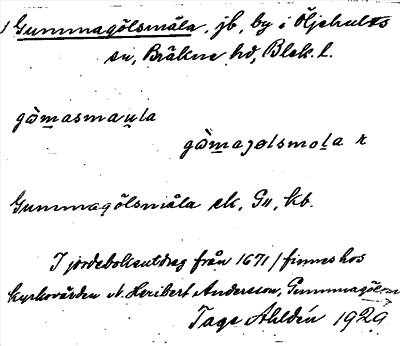 Gummagölsmåla, jb, by i Öljehults
sn, Bräkne hd, Blek. l.
gòmasmau̲la
gòmagølsmola k
Gummagölsmåla ek, G11, kb.
I jordeboksutdrag från 1671/ finnes hos
kyrkovärden N. Heribert Andersson, Gummagölsm
Tage Ahldén 1929